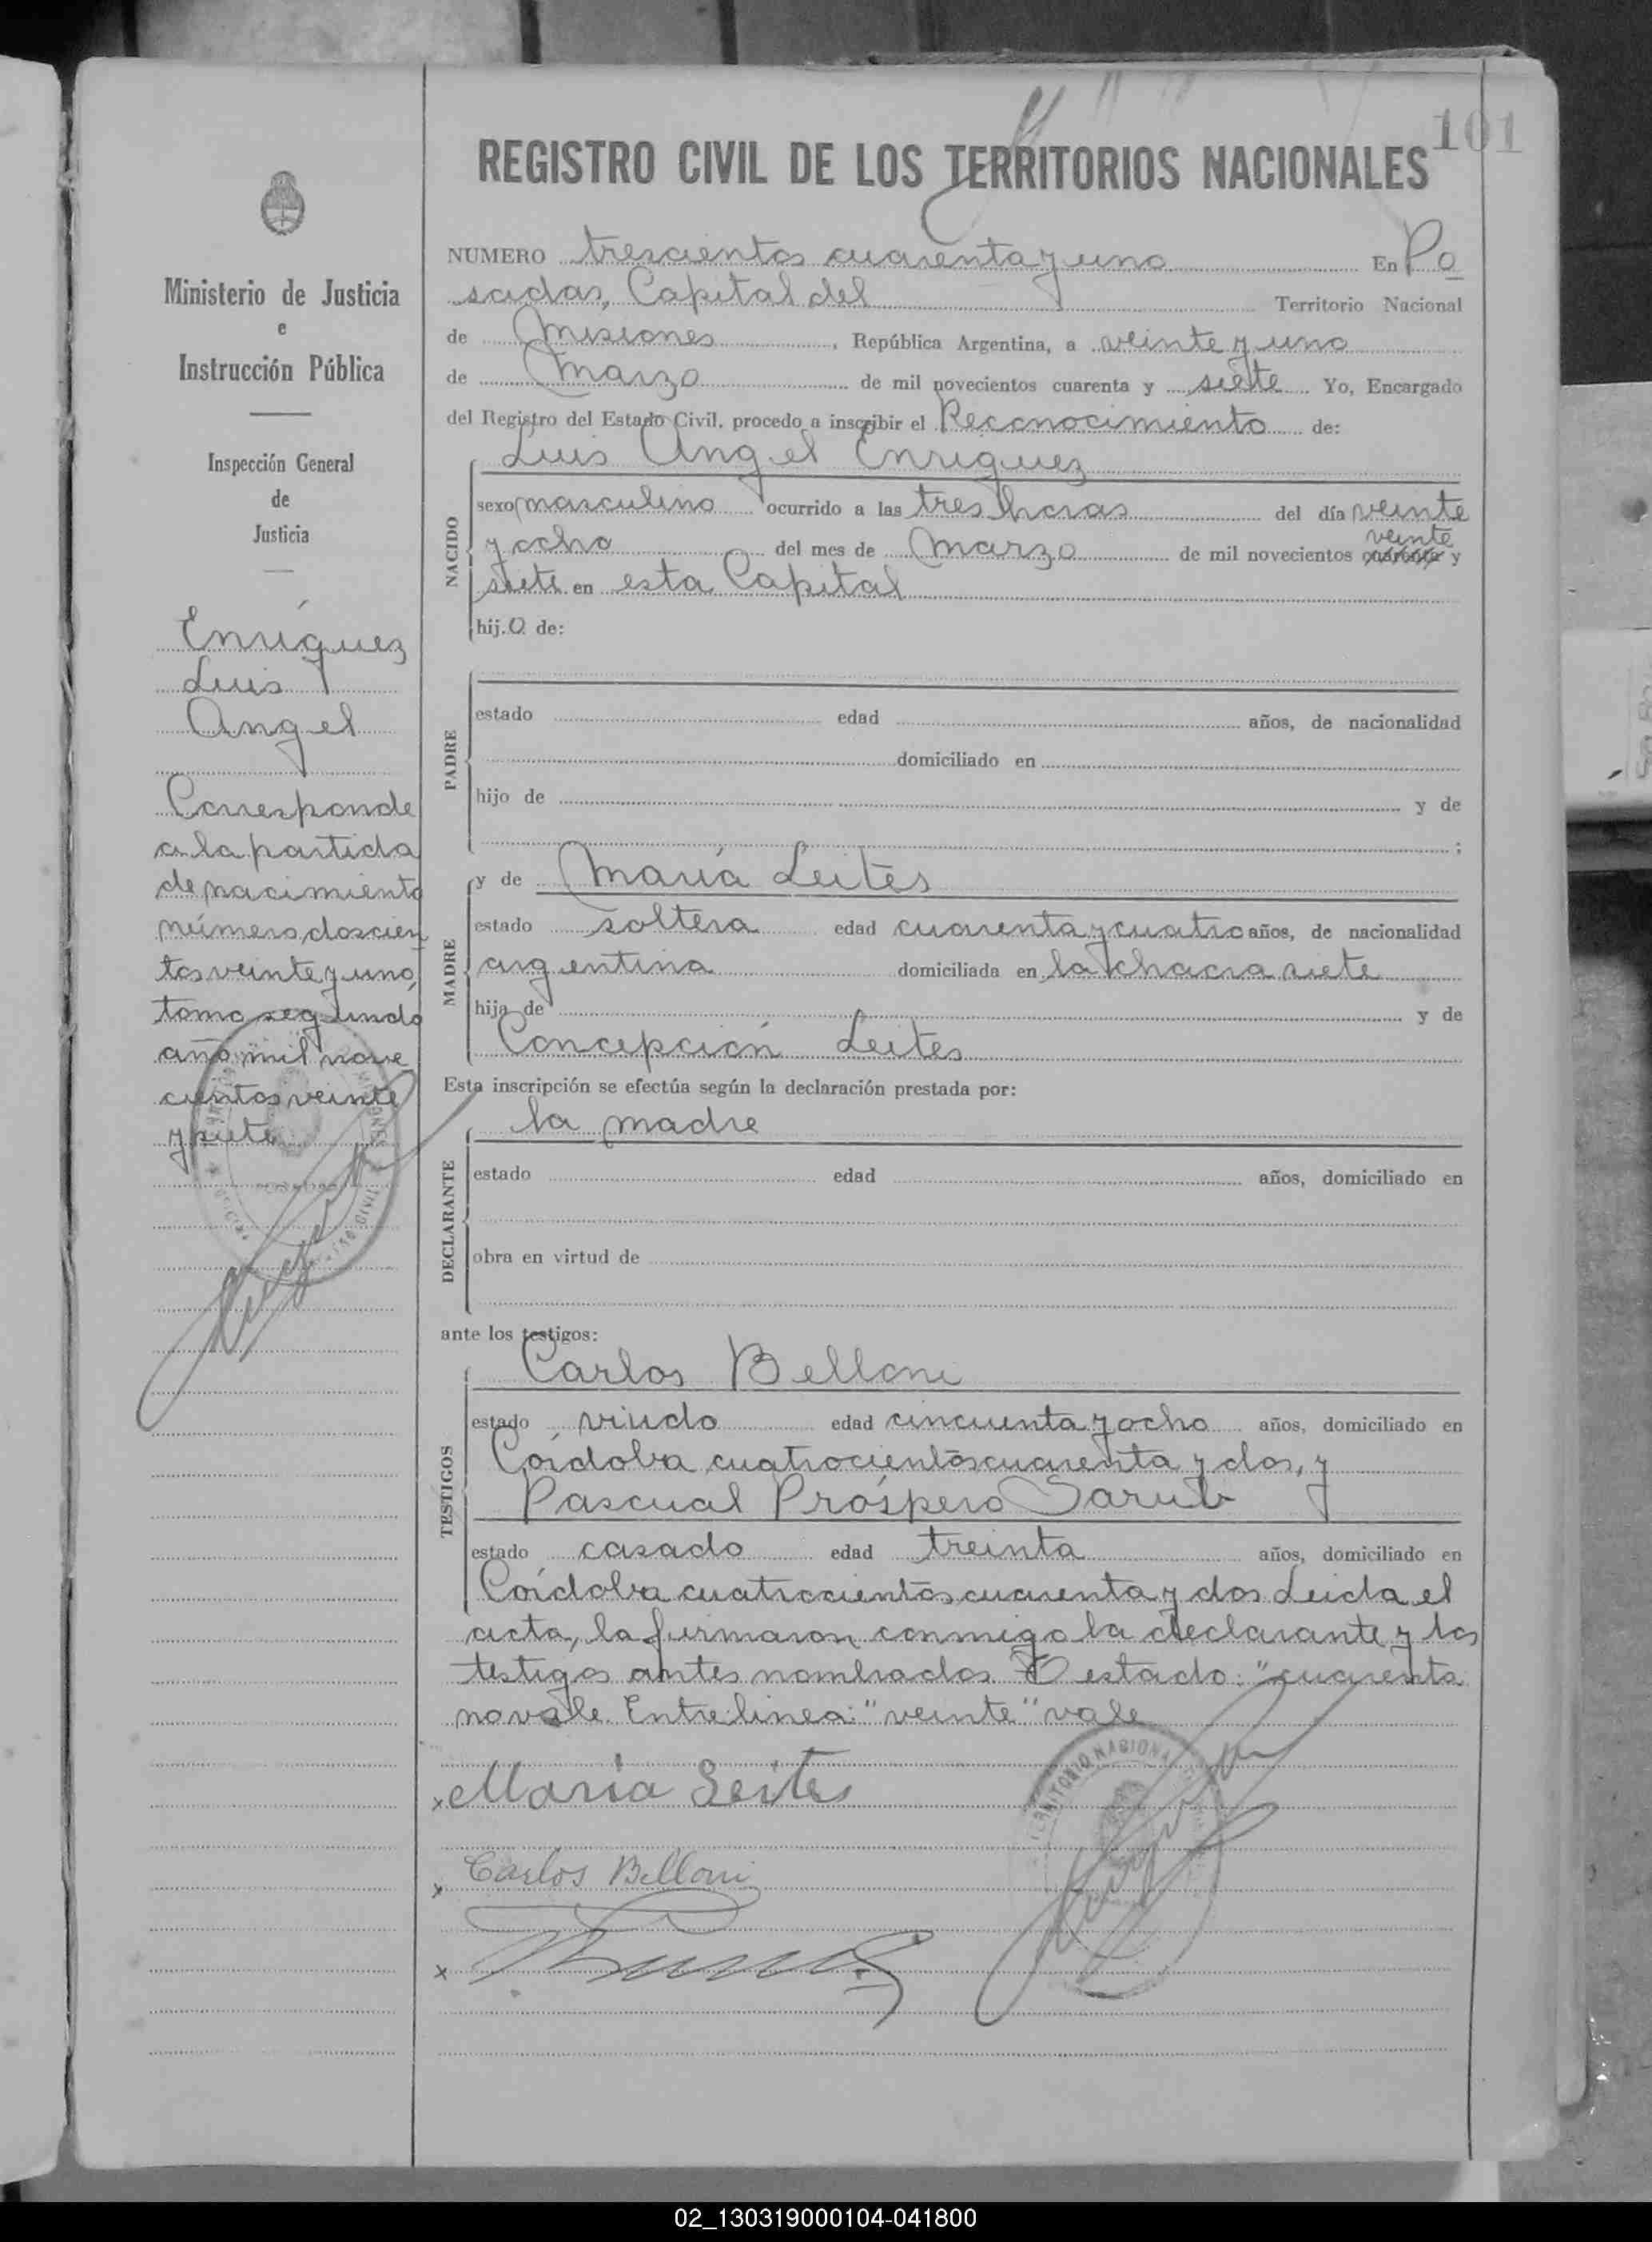 101
REGISTRO CIVIL DE LOS TERRITORIOS NACIONALES
Ministerio de Justicia
e
Instrucción Pública
Inspección General
de
Justicia
Enríquez
Luis
Angel
Corresponde
a la partida
de nacimiento
número doscien
tos veinte y uno,
tomo segundo
año mil nove
cientos veinte
y siete
NUMERO trescientos cuarenta y uno En Po
sadas, Capital del Territorio Nacional
de Misiones, República Argentina, a veinte y uno
de Marzo de mil novecientos cuarenta y siete Yo, Encargado
del Registro del Estado Civil, procedo a inscribir el Reconocimiento de:
Luis Angel Enriquez
NACIDO
sexo masculino ocurrido a las tres horas del día veinte
veinte
y ocho del mes de Marzo de mil novecientos cuarenta y
siete en esta Capital
hij.o de:
PADRE
estado edad años, de nacionalidad
domiciliado en
hijo de y de
;
MADRE
y de María Leites
estado soltera edad cuarenta y cuatro años, de nacionalidad
argentina domiciliada en la chacra siete
hija de y de
Concepción Leites
Esta inscripción se efectúa según la declaración prestada por:
la madre
DECLARANTE
estado edad años, domiciliado en
obra en virtud de
ante los testigos:
TESTIGOS
Carlos Belloni
estado viudo edad cincuenta y ocho años, domiciliado en
Córdoba cuatrocientos cuarenta y dos, y
Pascual Próspero Sarub
estado casado edad treinta años, domiciliado en
Córdoba cuatrocientos cuarenta y dos Leida el
acta, la firmaron conmigo la declarante y los
testigos antes nombrados estado: "cuarenta
no vale. Entrelinea: "veinte" vale
x Maria Leites
TERRITORIO NACIONAL
x Carlos Belloni
x
02_130319000104-041800